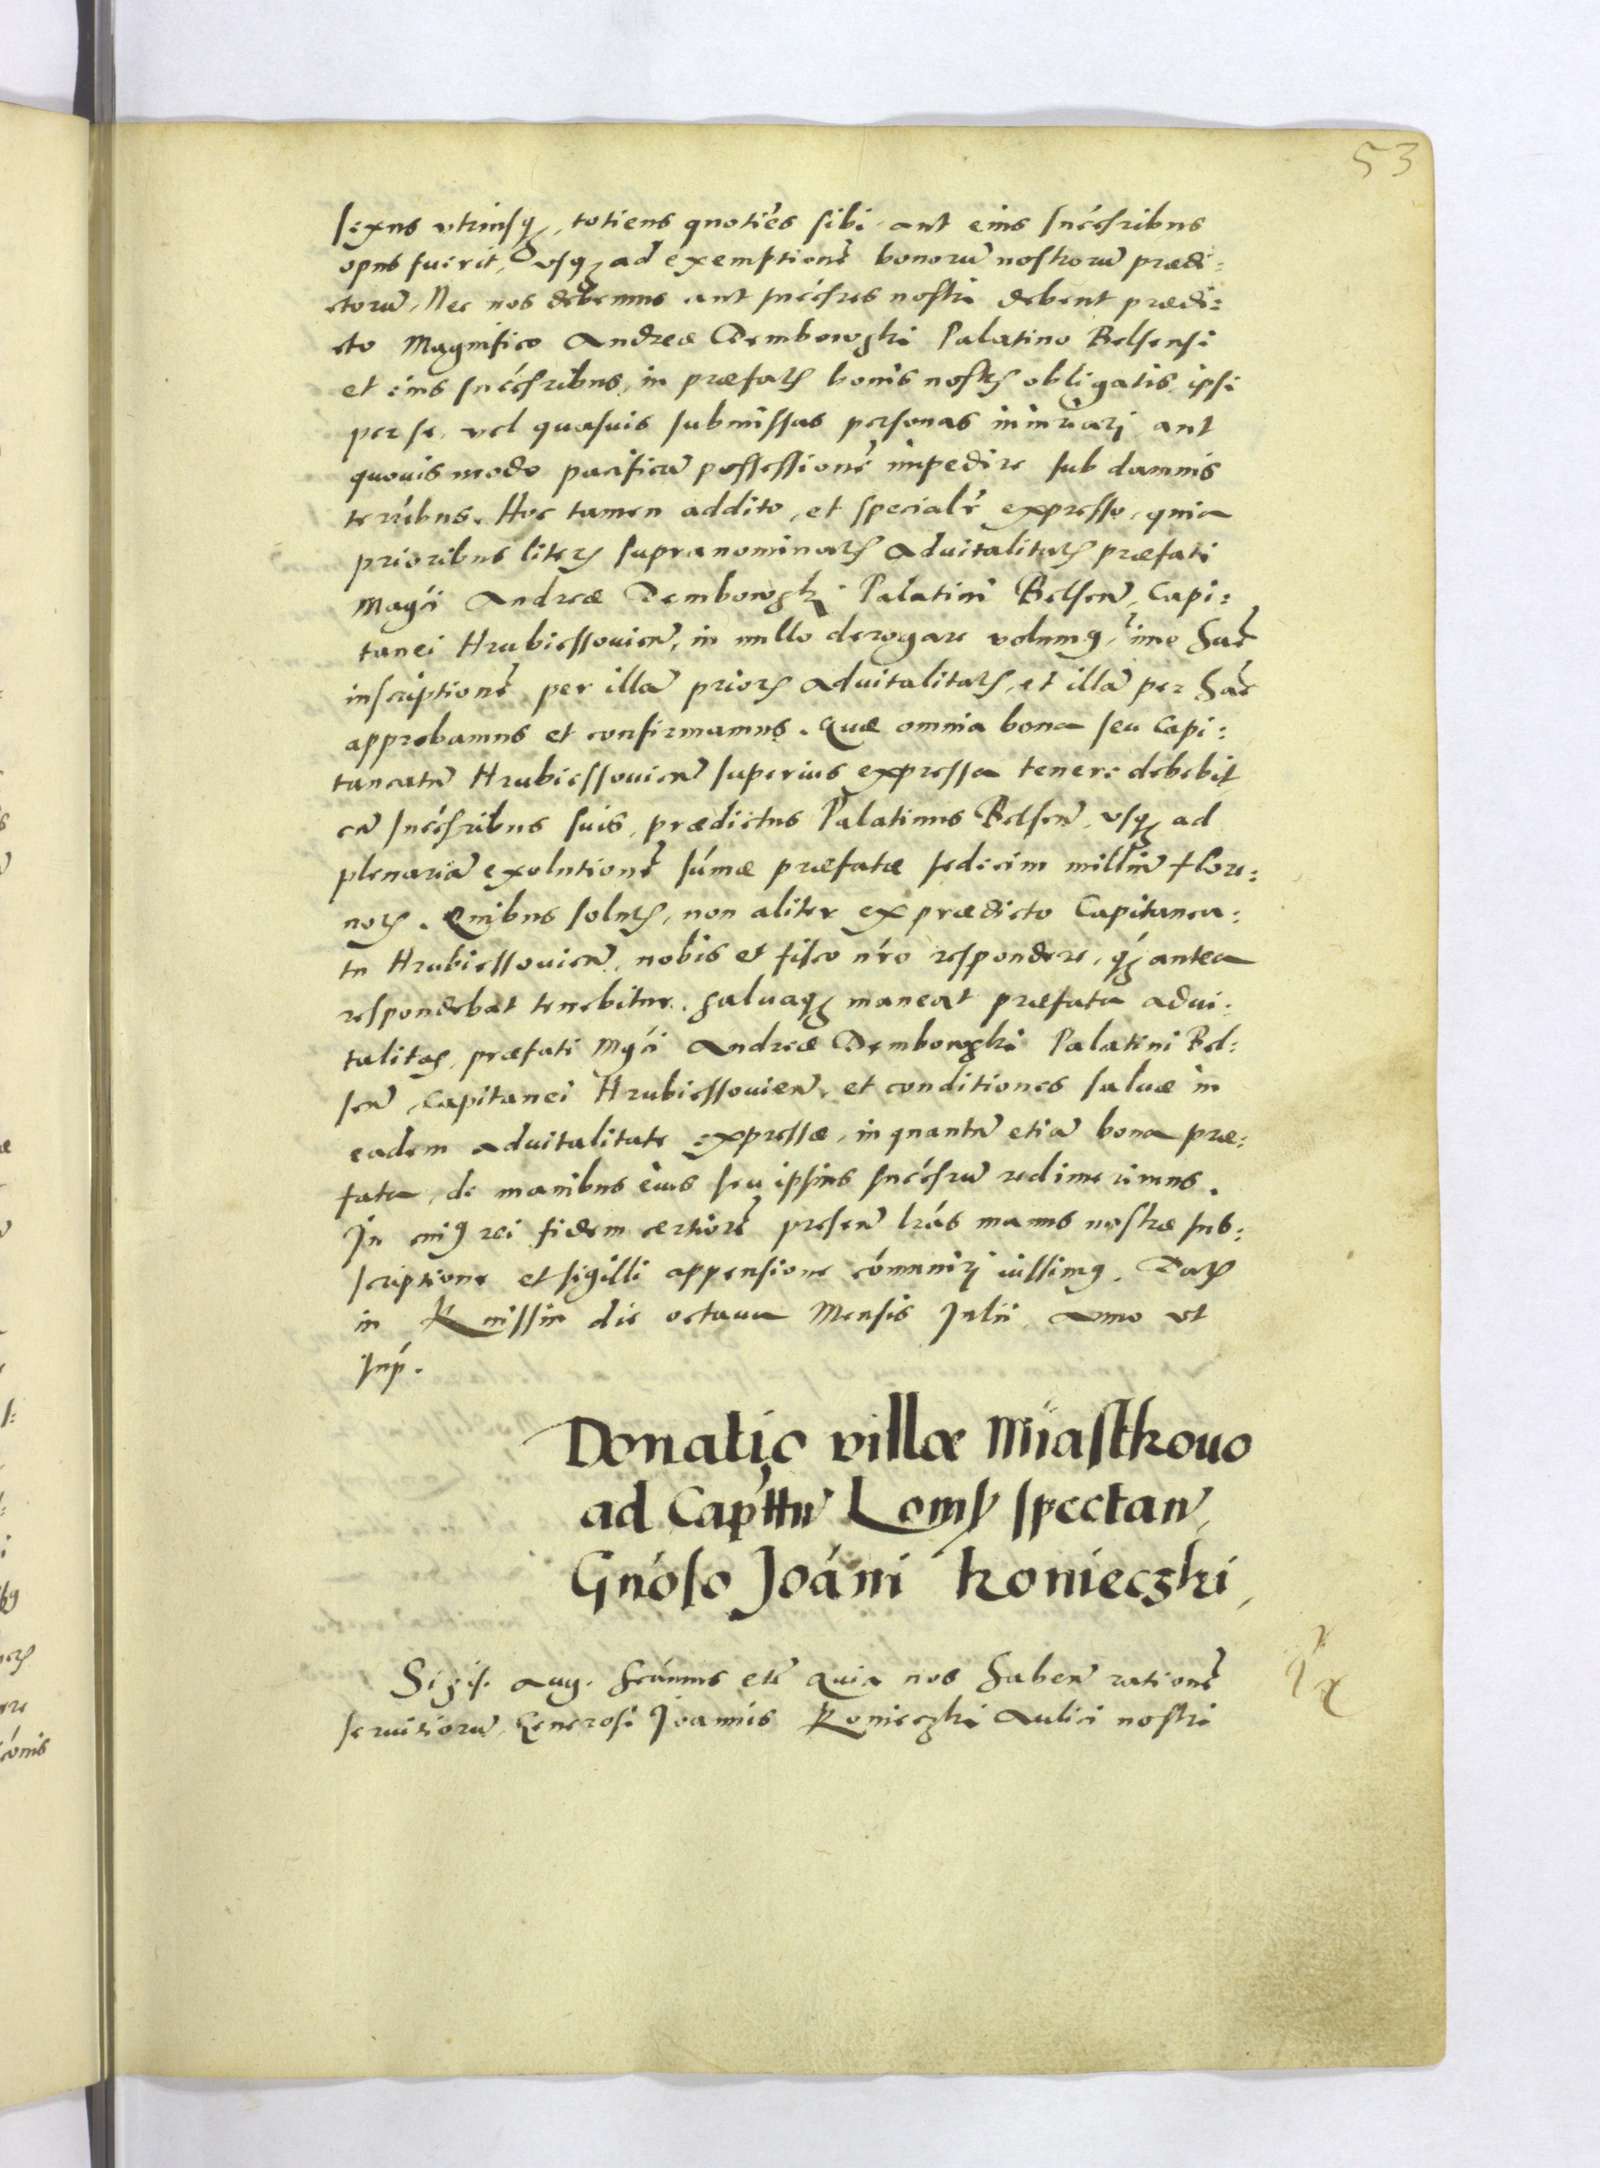 53
sexus vtriusq₃, totiens quotiēs sibi aut eius succ̄sribus
opus fuerit, vsq₃ ad exemptionē bonorū nostrorū prædi:
ctorū, Nec nos debemus aut succ̄sres nostri debent prædi:
cto Magnifico Andreæ Dembowski Palatino Belsensi
et eius succ̄sribus, in præfatꝭ bonis nostrꝭ obligatis, ipsi
per se, vel quasuis submissas personas iniuriari aut
quouis modo pacificā possessionē impedire sub damnis
terribus. Hoc tamen addito, et specialr̄ expresso, quia
prioribus literꝭ supranominatꝭ Aduitalitatꝭ præfati
Magc̄i Andreæ Dembowskj Palatini Belsen̄, Capi:
tanei Hrubiessouien̄, in nullo derogare volumꝰ, imo hāc
inscriptionē per illā priorꝭ Aduitalitatꝭ, et illā per hāc
approbamus et confirmamus. Quæ omnia bona seu Capi:
taneatū Hrubiessouien̄ superius expressa tenere debebit
cū succ̄sribus suis, prædictus Palatinus Belsen̄, vsq₃ ad
plenariā exolutionē sum̄æ præfatæ sedecim milliū flore:
norꝭ. Quibus solutꝭ, non aliter ex prædicto Capitanea:
tu Hrubiessouien̄, nobis et fisco nr̄o respondere, q₃ antea
respondebat tenebitur. Saluaq₃ maneat præfata adui:
talitas, præfati Mgc̄i Andreæ Dembowski Palatini Bel:
sen̄, Capitanei Hrubiessouien̄, et conditiones saluæ in
eadem aduitalitate expressæ, in quantū etiā bona præ:
fata, de manibus eius seu ipsius succ̄srū redimerimus.
In cuiꝰ rei fidem certiorē presen̄ lrās manus nostræ sub:
scriptione et sigilli appensione com̄uniri iussimꝰ. Datꝭ
in Knissin die octaua Mensis Julii Anno vt
sup̄.
Donatio villæ Miastkouo
ad Cap̄ttū Lomꝭ spectan̄,
Gn̄oso Joān̄i Konieczki,
Sigis. Aug. Scān̄us etc̄ Quia nos haben̄ rationē
seruitiorū, Generosi Joannis Konieczki Aulici nostri